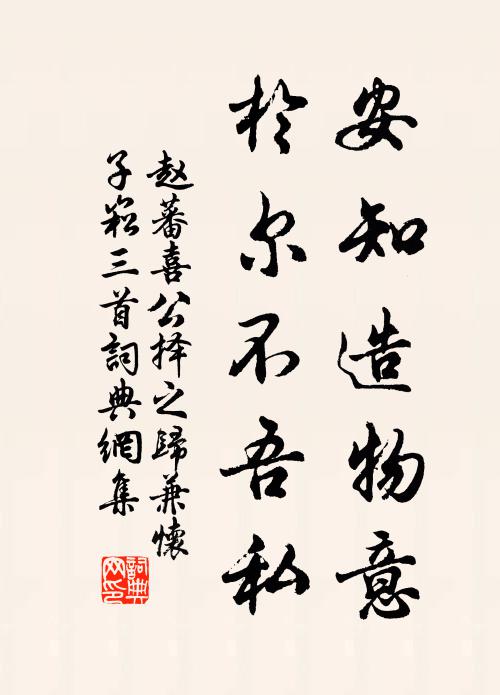 安知造物意
於尔不吾私
赵蕃喜公择之歸兼懷
子崧三首詞典網集
詞典网印